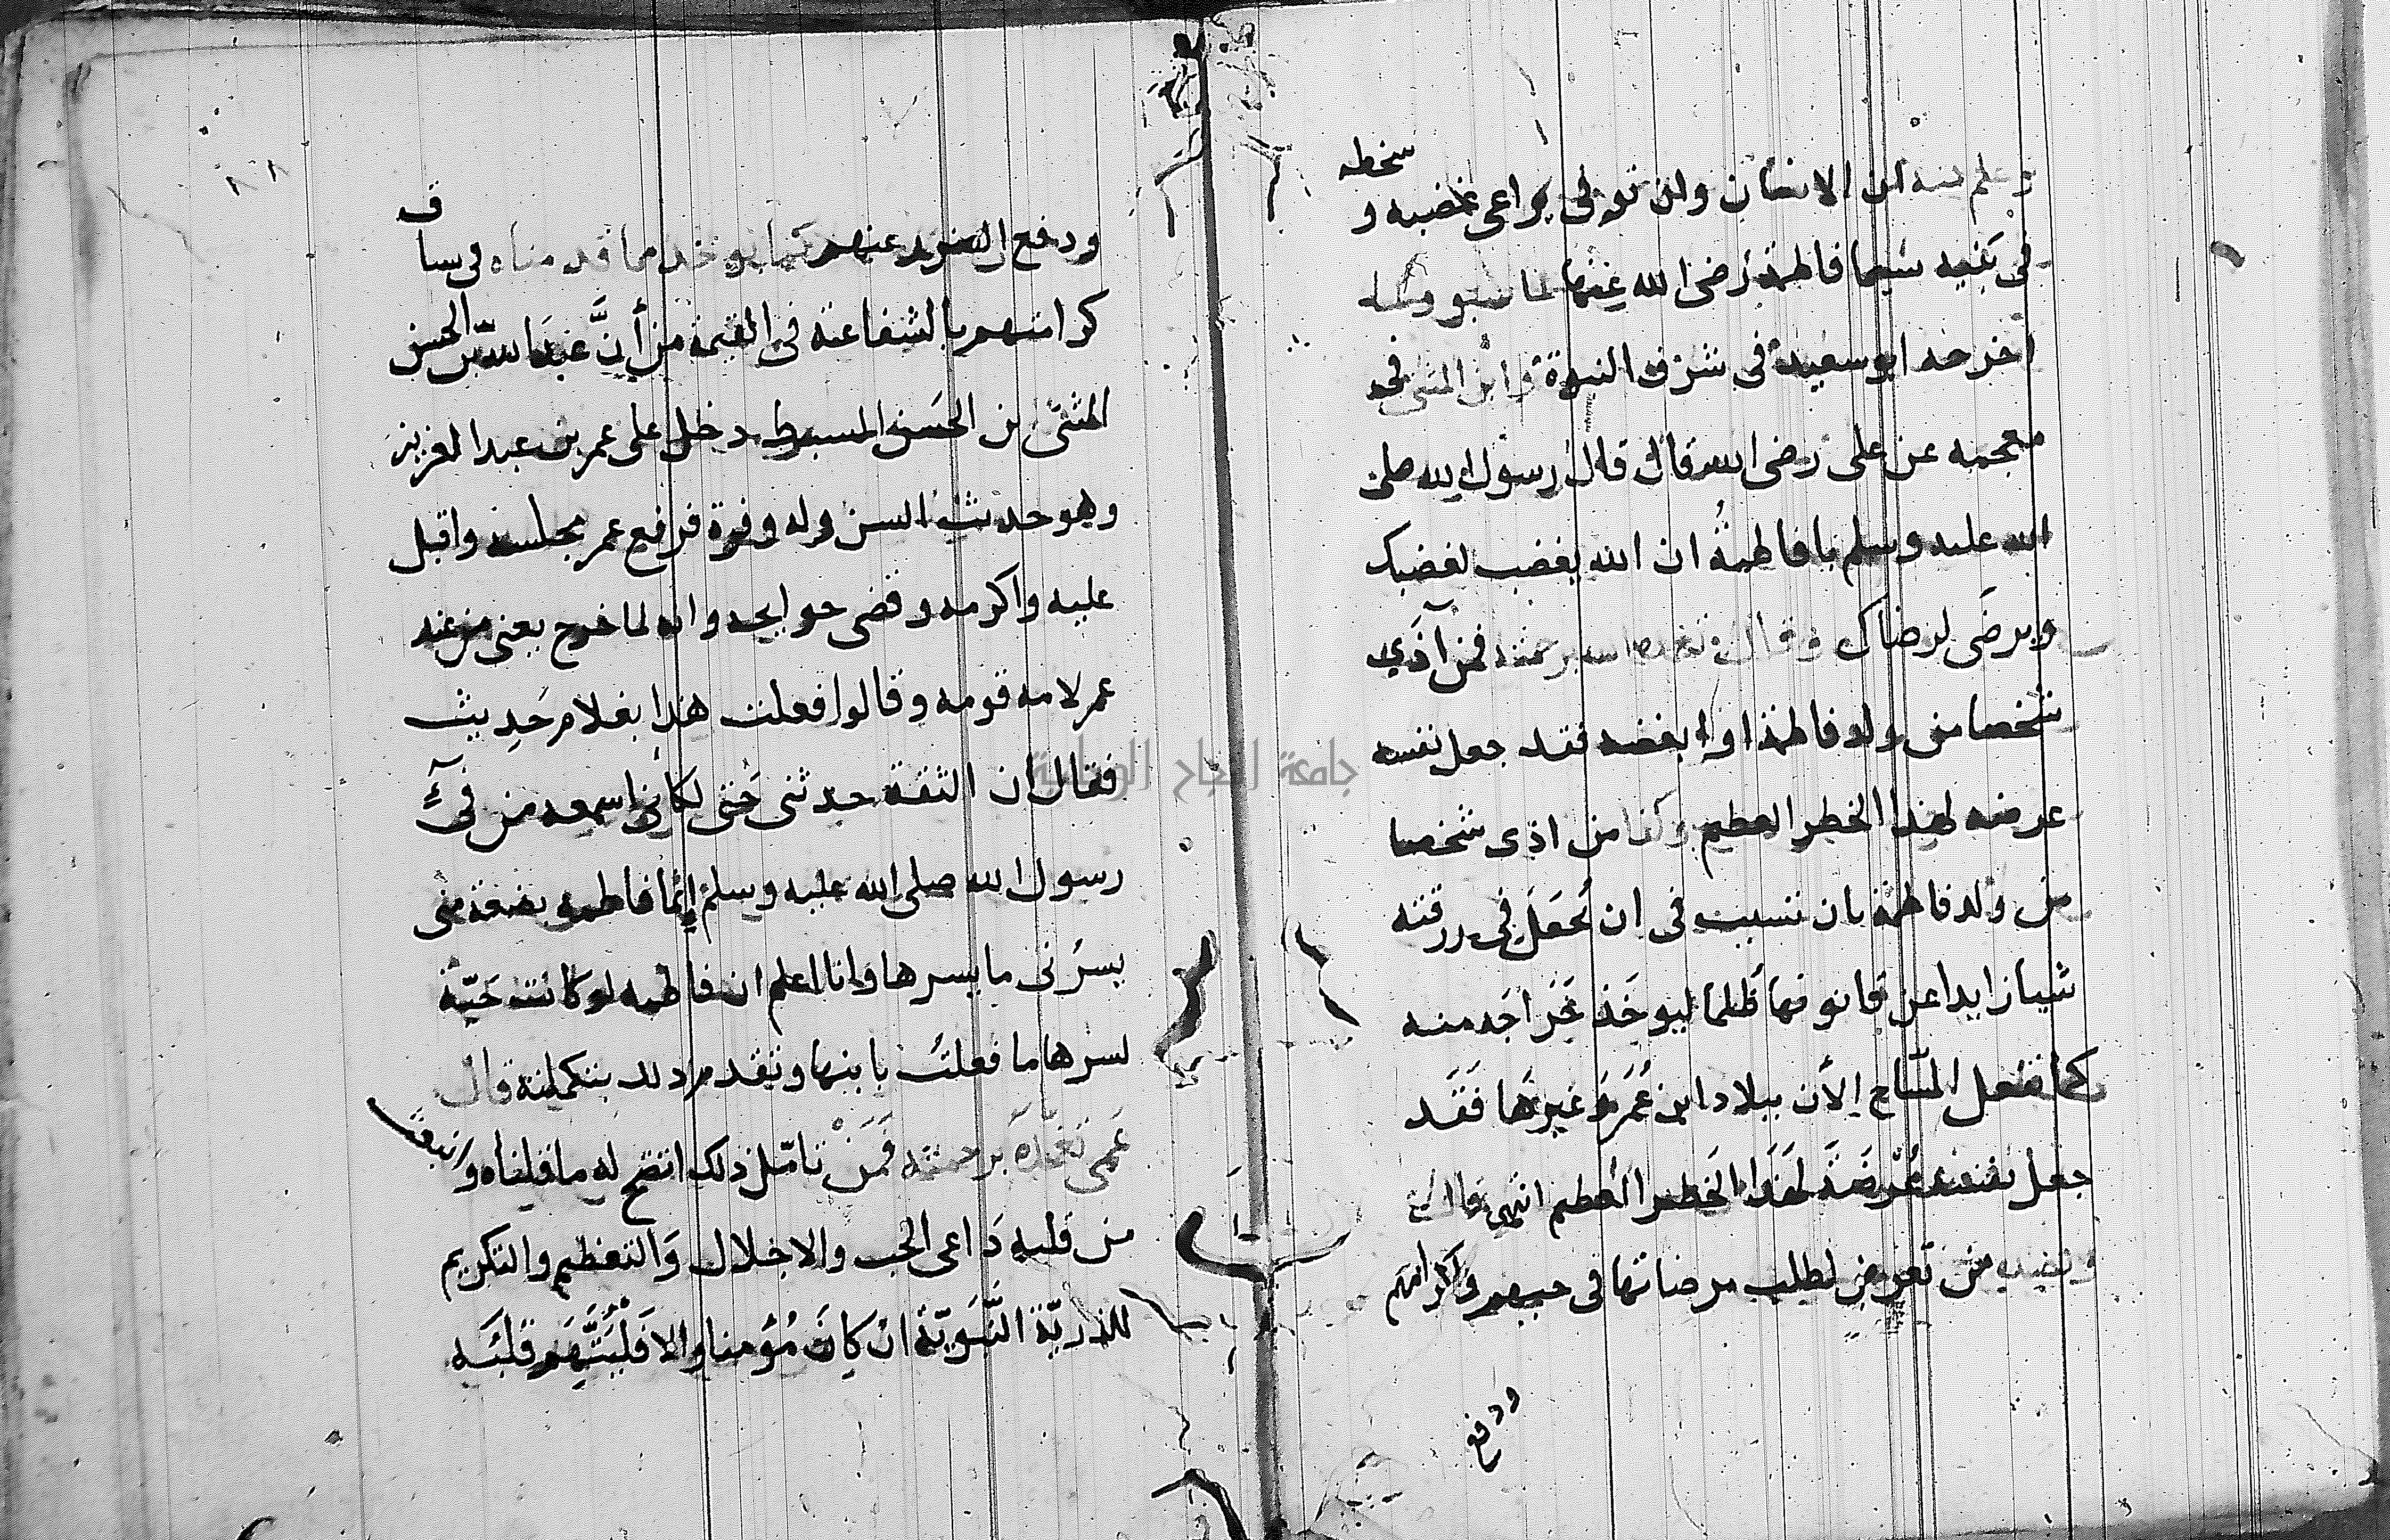 وعلم منه ان الانسان ولن توفى يراعى غضبه و سخطه
فى بنيه سيما فاطمة رضى الله عنها لما
اخرجه ابو سعيد فى شرف النبوة وابن المثنى فى
معجمه عن على رضى الله قال قال رسول الله صلى
الله عليه وسلم يا فاطمة ان الله يغضب لغضبك
ويرضى لرضاك وقال تغمده الله برحمته فمن آذي
شخصا من ولد فاطمة او ابغضه فقد جعل نفسه
عرضه لهذا الخطر العظيم وكذا من اذى شخصا
من ولد فاطمة بان تسبب فى ان يُجعَل فى ورقته
شيا زايدا عن قانونها ظلما ليوخَذ خراجه منه
كما تفعل المسّاح الأن ببلاد ابن عُمَر وَغيرها فَقَد
جعل نفسه عُرضَةً لهَذا الخَطر العظيم انتهى قال
من تعرض لطلب مرضاتها فى حبهم واكرامهم
ودفع
٨٨
ودفع الضرر عنهم كما يوخذ مما قدمناه فى سياق
كرامتهم بالشفاعة فى القيمة من أنَّ عَبدَ الله بن الحسن
المثنى بن الحَسَن السبط دخل على عمر بن عبد العزيز
وهو حديث السن وله وفرة فرفع عمر مجلسه واقبل
عليه واكرمه وقضى حوايجه وانه لما خرج يعنى من عند
عمر لامه قومه وقالوا فعلت هذا بغلام حَدِيث
فقال ان الثقة حدثنى حَتى لكانى اسمعه من فىّ
رسول الله صلى الله عليه وسلم إنما فاطمه بضعة منى
يسرُنى ما يسرها وانا اعلم ان فاطمه لو كانت حَيّة
لسرها ما فعلتُ بابنها وتقدم مردلد بتكملته قال
عمى تغمّدَهُ برحمته فَمَنْ تامّل ذلك اتضح له ما قلناه وانبعث
من قلبه دَاعى الحب والاجلال وَالتعظيم والتكريم
للذريّة النّبَويّة ان كانَ مُؤمنا والا فَلْيَتَّهِم قَلبَه
جامعة النجاح الوطنية